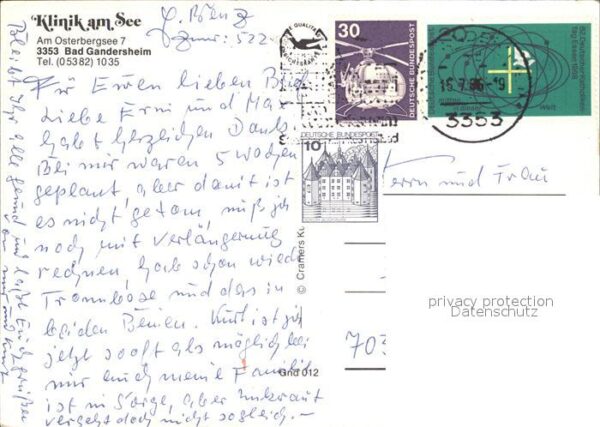 Klinik am See
Am Osterbergsee 7
3353 Bad Gandersheim
Tel. (05382) 1035
Zimmer: 522
Für Euren lieben
Liebe Erni und
habt herzlichen Dank.
Bei mir waren 5 Wochen
geplant aber damit ist
es nicht getan, muß ja
noch mit Verlängerung
rechnen, hab schon wieder
Trombose und das in
beiden Beinen. Kurt ist ja
jetzt so oft als möglich bei
mir auch meine Familie
ist in Sorge, aber Unkraut
vergeht doch nicht sogleich. -
Bleibt Ihr alle gesund und laßt Euch grüßen
von mir und Kurt
30
DEUTSCHE BUNDESPOST
DEUTSCHE BUNDESPOST
10
82. Deutscher Katholikentag
Welt
15.7.86-9
3353
Herrn und Frau
703
© Cramers Ku
Gnd 012
privacy protection
Datenschutz